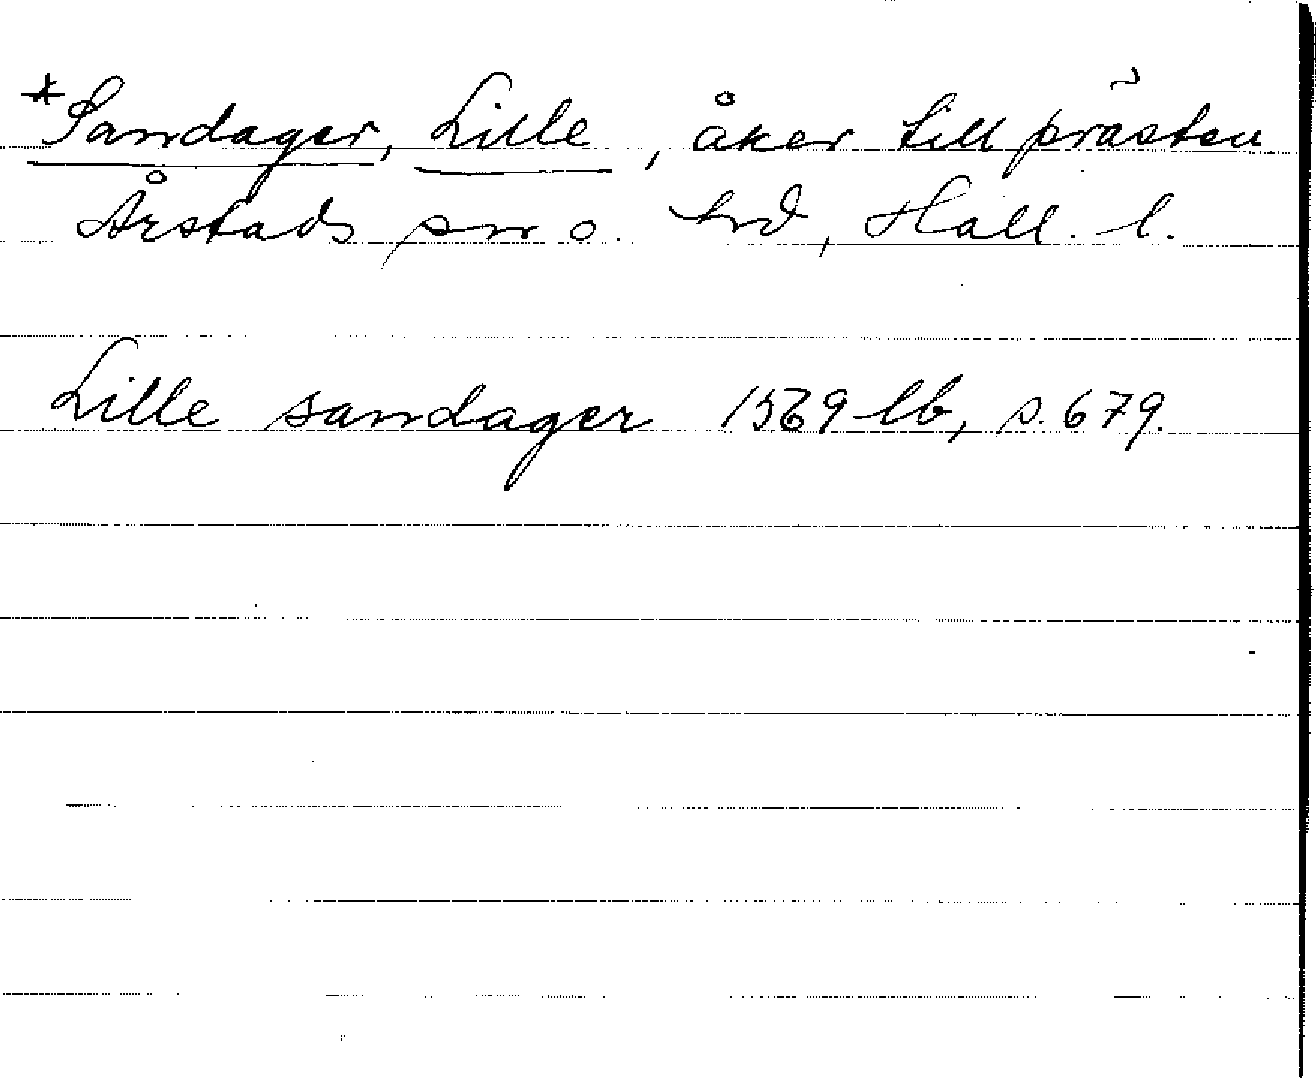 *Sandager, Lille, åker till prästen
Årstads sn o. hd, Hall. l.
Lille sandager 1569 lb, s. 679.